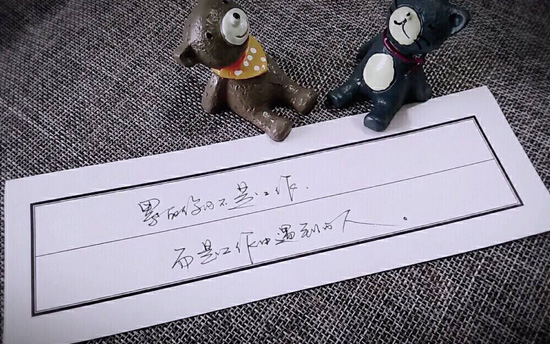 累你的不是工作.
而是工作中遇到的人。